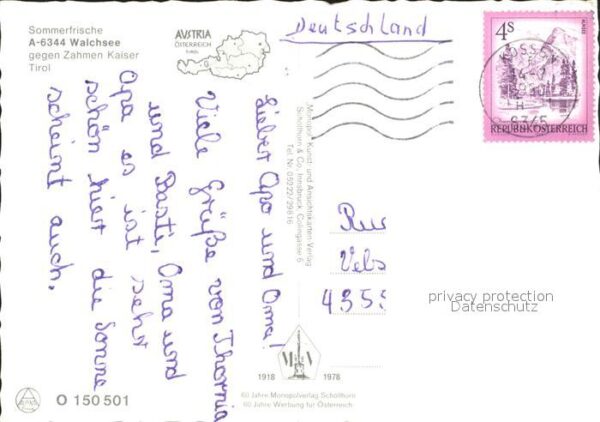 Sommerfrische
A-6344 Walchsee
gegen Zahmen Kaiser
Tirol
AUSTRIA
ÖSTERREICH
TIROL
Deutschland
4S
ALMSEE
REPUBLIK ÖSTERREICH
KÖSSEN
6345
Lieber Opa und Oma!
Viele Grüße von Thornia
und Basti, Oma und
Opa es ist sehr
schön hier die Sonne
scheint auch.
Monopol Kunst- und Ansichtskarten-Verlag
Schöllhorn & Co, Innsbruck, Colingasse 6
Tel. Nr. 05222/29816
Velb
4355
privacy protection
Datenschutz
M V
1918 1978
60 Jahre Monopolverlag Schöllhorn
60 Jahre Werbung für Österreich
O 150 501